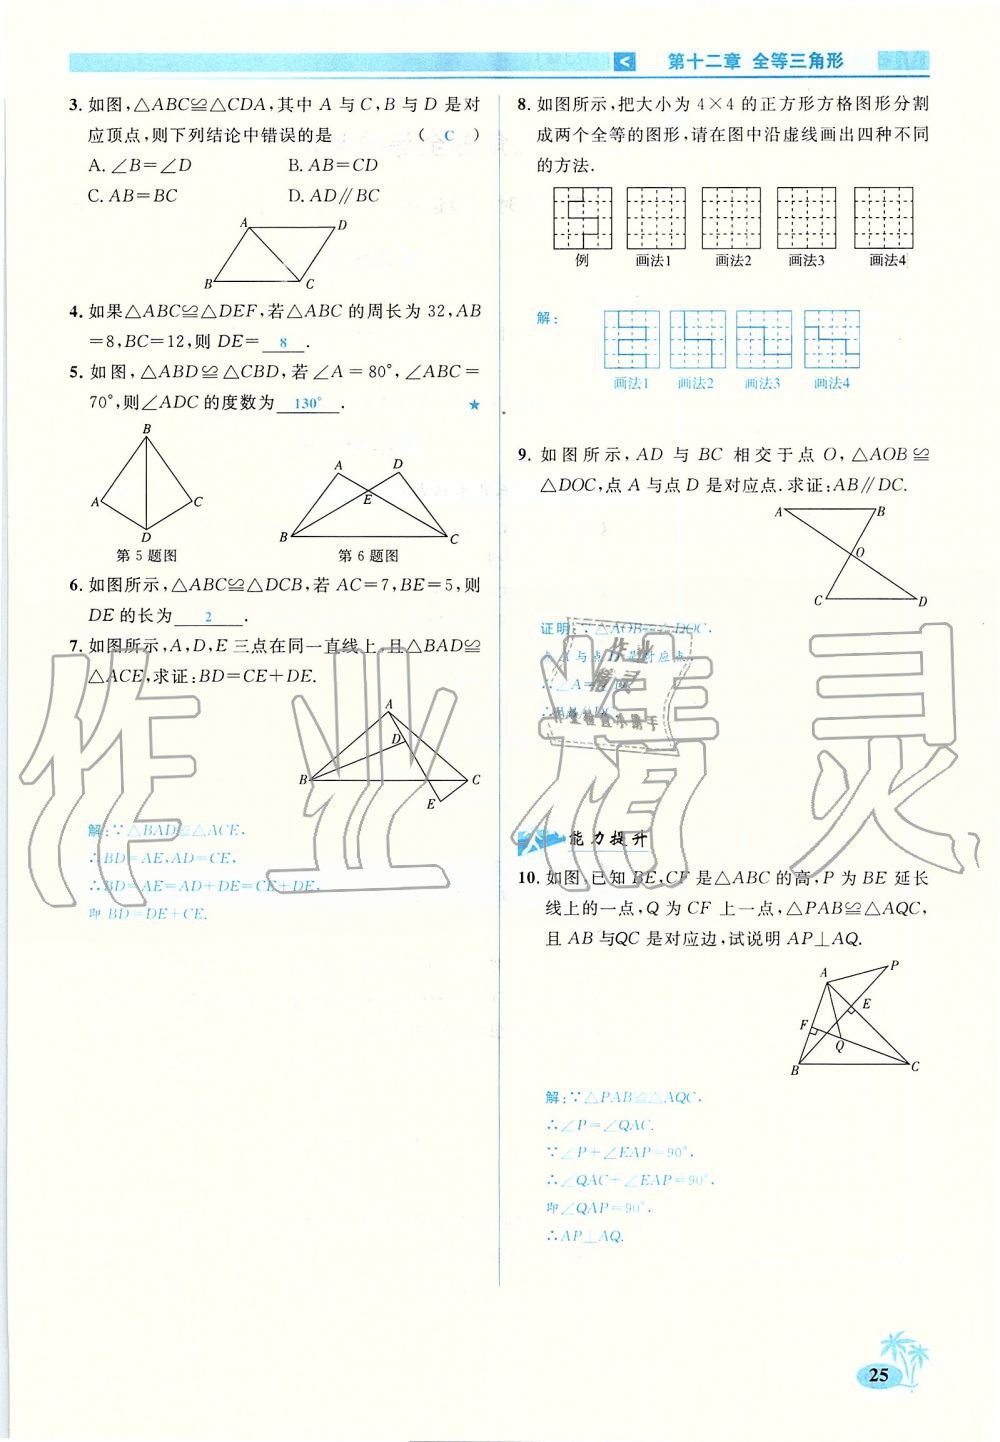 < 第十二章 全等三角形
3. 如图,△ABC≌△CDA,其中 A 与 C,B 与 D 是对
应顶点,则下列结论中错误的是 ( C )
A. ∠B=∠D B. AB=CD
C. AB=BC D. AD∥BC
A D
B C
4. 如果△ABC≌△DEF,若△ABC 的周长为 32,AB
=8,BC=12,则 DE= 8 .
5. 如图,△ABD≌△CBD,若∠A=80°,∠ABC=
70°,则∠ADC 的度数为 130° . ★
B
A C
D
第 5 题图
A D
E
B C
第 6 题图
6. 如图所示,△ABC≌△DCB,若 AC=7,BE=5,则
DE 的长为 2 .
7. 如图所示,A,D,E 三点在同一直线上,且△BAD≌
△ACE,求证:BD=CE+DE.
A
D
B C
E
解:∵△BAD≌△ACE,
∴BD=AE,AD=CE,
∴BD=AE=AD+DE=CE+DE,
即 BD=DE+CE.
8. 如图所示,把大小为 4×4 的正方形方格图形分割
成两个全等的图形,请在图中沿虚线画出四种不同
的方法.
例 画法1 画法2 画法3 画法4
解:
画法1 画法2 画法3 画法4
9. 如图所示,AD 与 BC 相交于点 O,△AOB≌
△DOC,点 A 与点 D 是对应点.求证:AB∥DC.
A B
O
C D
证明:∵△AOB≌△DOC,
点 A 与点 D 是对应点,
∴∠A=∠D,
∴AB∥DC.
能力提升
10. 如图,已知 BE,CF 是△ABC 的高,P 为 BE 延长
线上的一点,Q 为 CF 上一点,△PAB≌△AQC,
且 AB 与QC 是对应边,试说明 AP⊥AQ.
P
A
E
F
Q
B C
解:∵△PAB≌△AQC,
∴∠P=∠QAC.
∵∠P+∠EAP=90°,
∴∠QAC+∠EAP=90°,
即∠QAP=90°,
∴AP⊥AQ.
作业精灵
作业
精灵
作业检查小助手
25